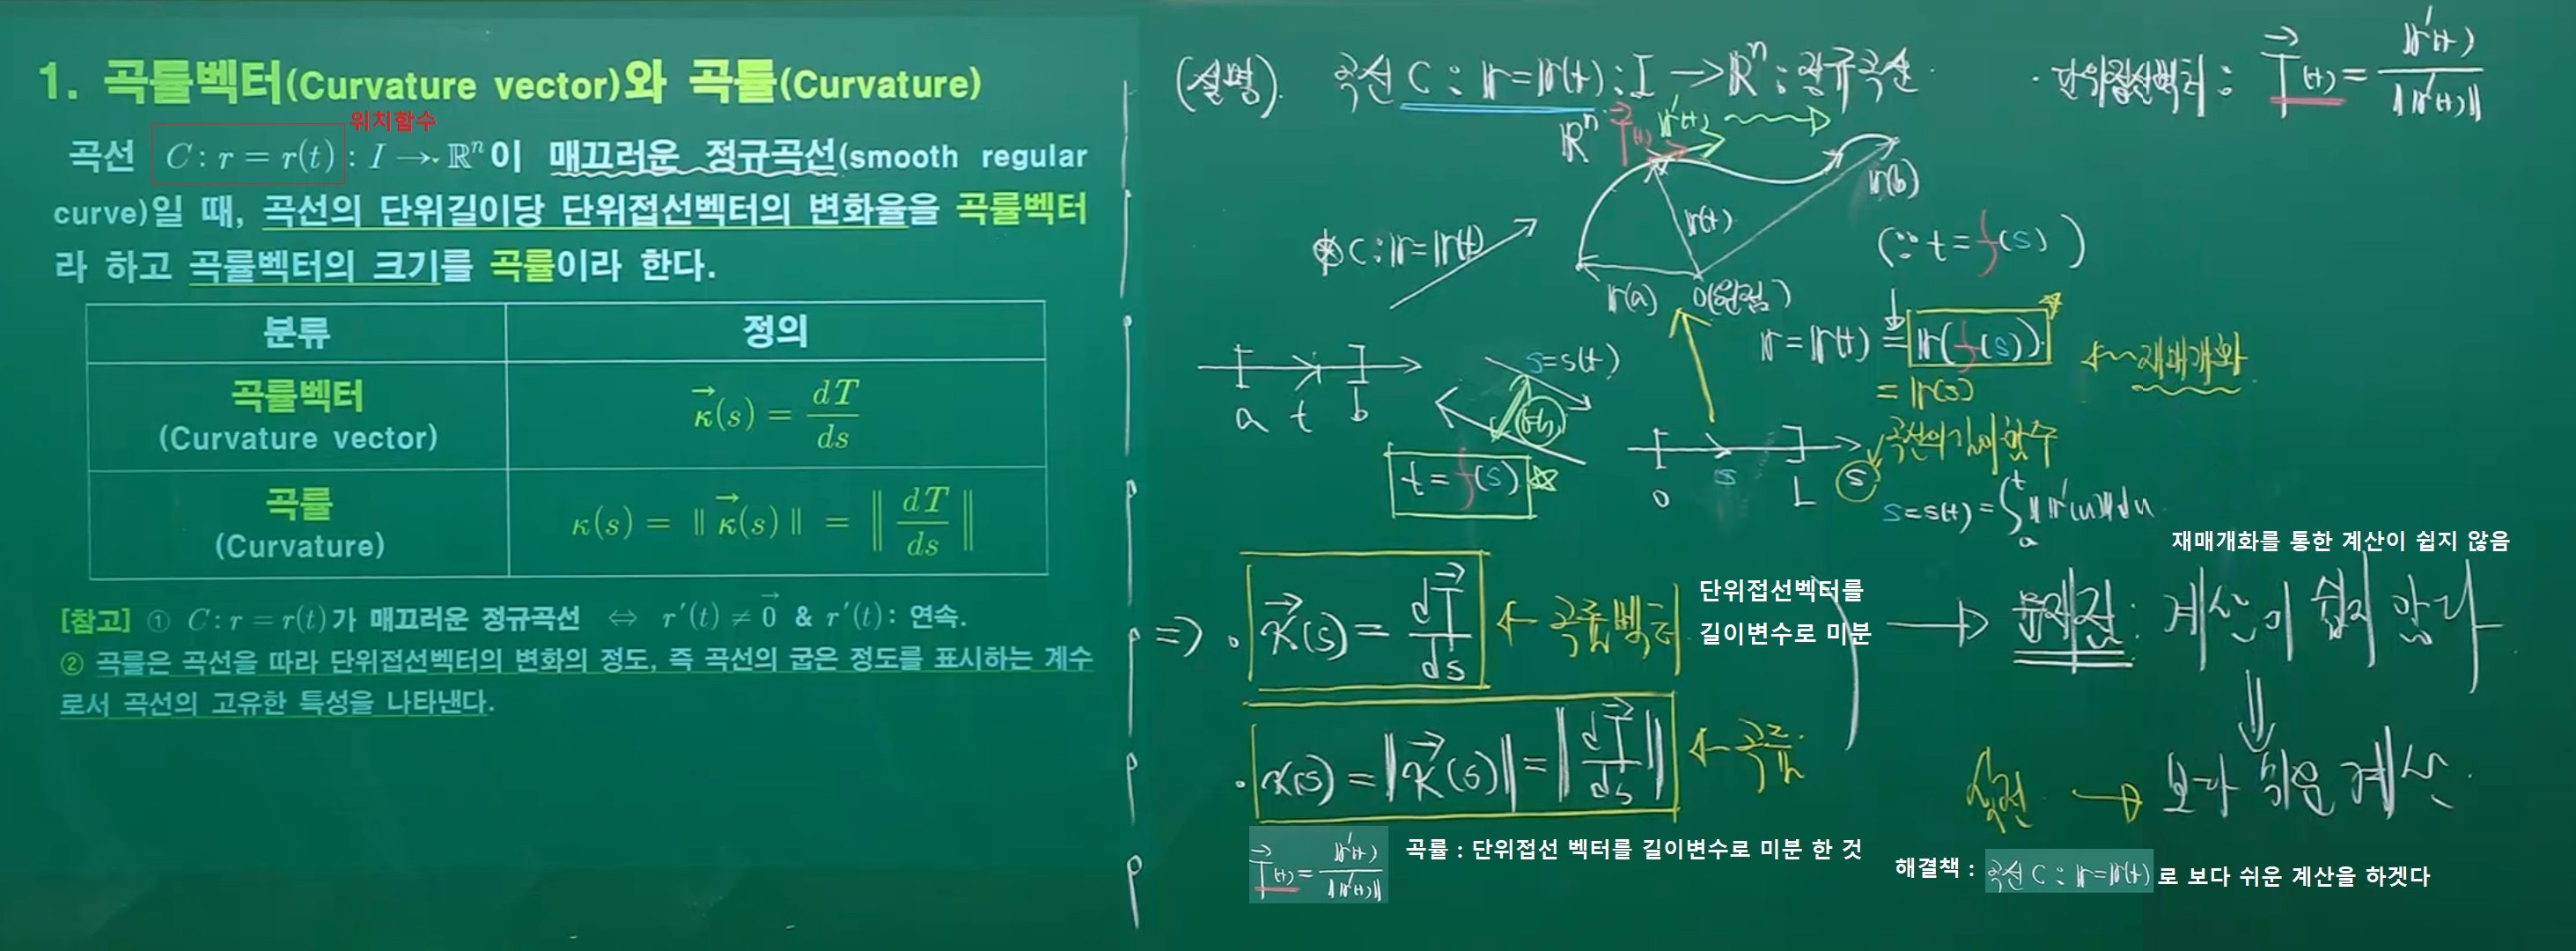 1. 곡률벡터(Curvature vector)와 곡률(Curvature)
위치함수
곡선 C : r = r(t) : I → ℝⁿ이 매끄러운 정규곡선(smooth regular
curve)일 때, 곡선의 단위길이당 단위접선벡터의 변화율을 곡률벡터
라 하고 곡률벡터의 크기를 곡률이라 한다.
분류 정의
곡률벡터
(Curvature vector)
κ⃗(s) = dT/ds
곡률
(Curvature)
κ(s) = ‖κ⃗(s)‖ = ‖dT/ds‖
[참고] ① C : r = r(t)가 매끄러운 정규곡선 ⇔ r′(t) ≠ 0⃗ & r′(t) : 연속.
② 곡률은 곡선을 따라 단위접선벡터의 변화의 정도, 즉 곡선의 굽은 정도를 표시하는 계수
로서 곡선의 고유한 특성을 나타낸다.
(설명). 곡선 C : r = r(t) : I → ℝⁿ : 정규곡선.
· 단위접선벡터 : T⃗(t) = r′(t)/‖r′(t)‖
ℝⁿ T⃗(t) r′(t)
r(t) r(b)
C : r = r(t)
(∵ t = f(s))
r(a) O(원점)
r = r(t) = r(f(s)) ← 재매개화
= r(s)
s = s(t)
a t b
t = f(s)
0 s L s
곡선의 길이함수
s = s(t) = ∫ₐᵗ ‖r′(u)‖du
재매개화를 통한 계산이 쉽지 않음
⇒ · κ⃗(s) = dT⃗/ds ← 곡률벡터
단위접선벡터를
길이변수로 미분
→ 문제점 : 계산이 쉽지 않다
· κ(s) = ‖κ⃗(s)‖ = ‖dT⃗/ds‖ ← 곡률
실전 → 보다 쉬운 계산.
T⃗(t) = r′(t)/‖r′(t)‖
곡률 : 단위접선 벡터를 길이변수로 미분 한 것
해결책 : 곡선 C : r = r(t) 로 보다 쉬운 계산을 하겟다